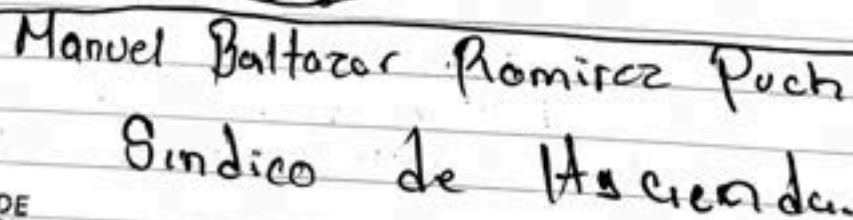 Manuel Baltazar Ramirez Puch
Sindico de Hacienda.
DE